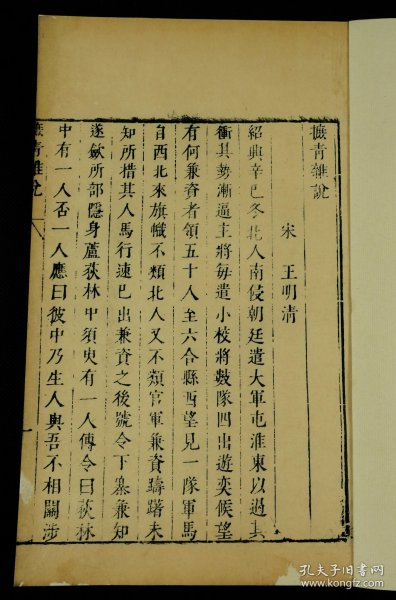 摭青雜說
宋 王明清
紹興辛巳冬北人南侵朝廷遣大軍屯淮東以遏其
衝其勢漸逼主將每遣小校將數隊四出遊奕候望
有何兼資者領五十人至六合縣西望見一隊軍馬
自西北來旗幟不類北人又不類官軍兼資躊躇未
知所措其人馬行速已出兼資之後號令下寨兼知
遂斂所部隱身蘆荻林中須臾有一人傳令曰荻林
中有一人否一人應曰彼中乃生人與吾不相關涉
摭青雜說
一
孔夫子旧书网
www.kongfz.com